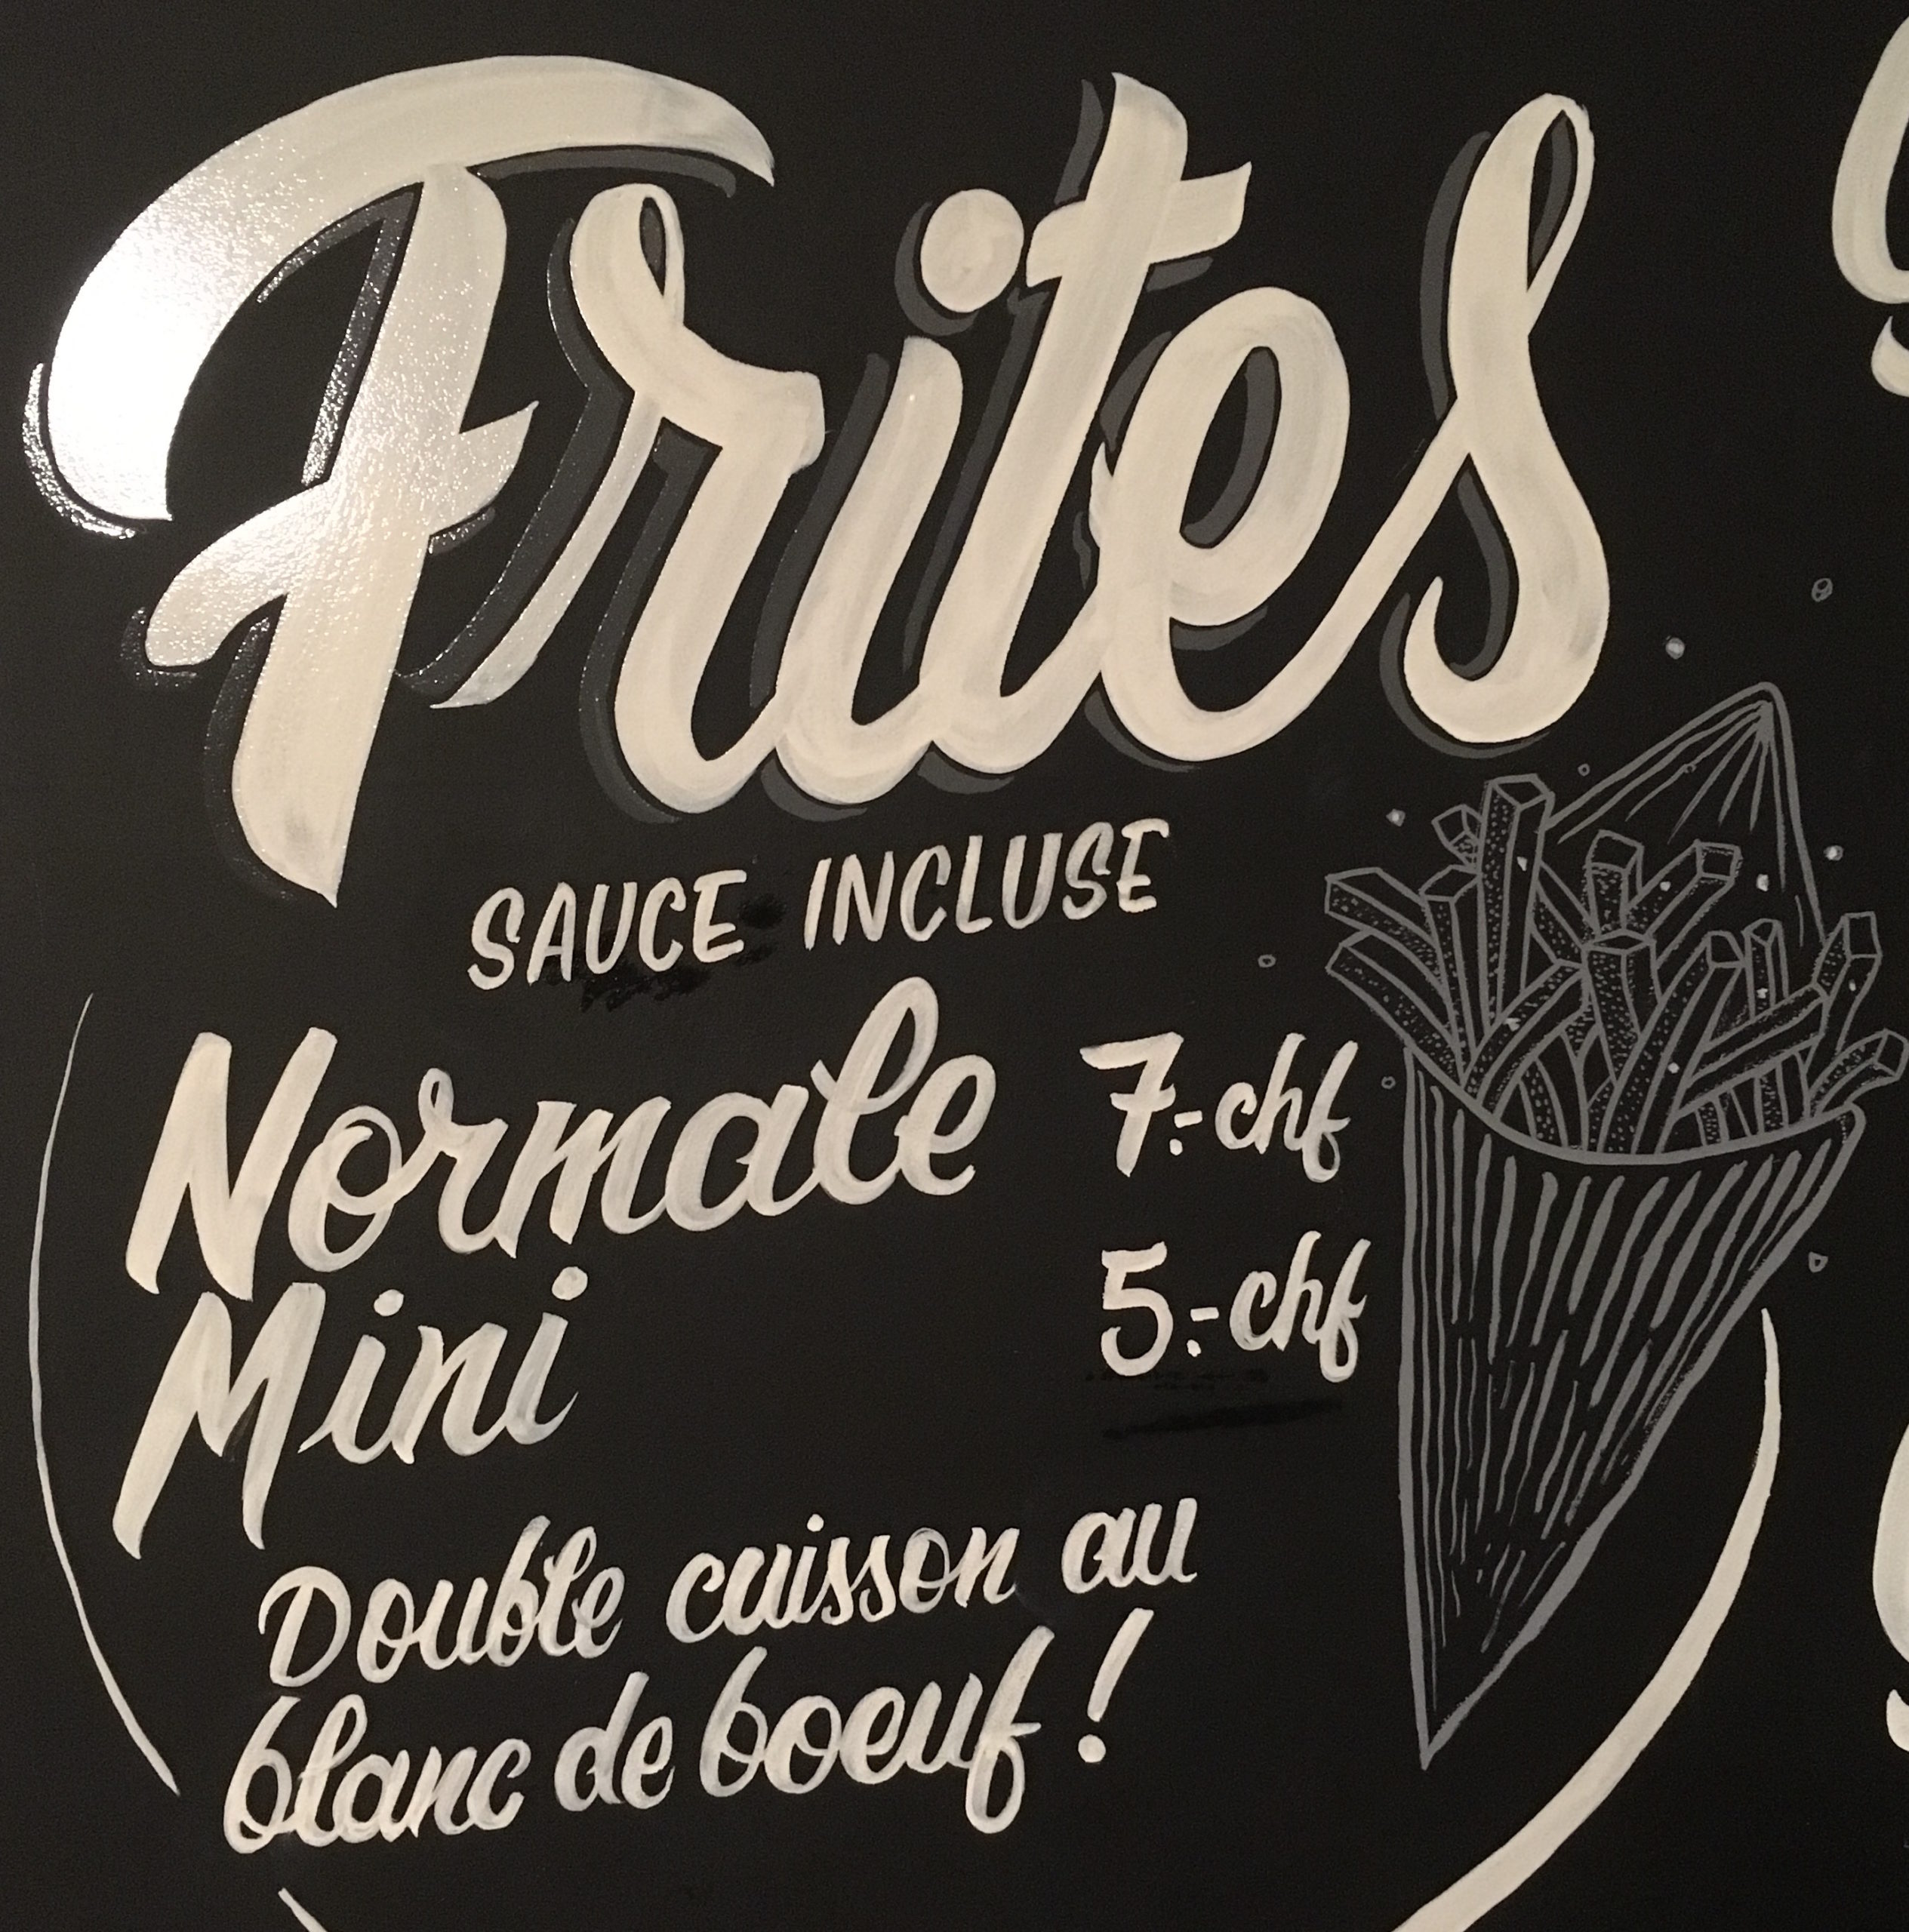 Frites
SAUCE INCLUSE
Normale 7.-chf
Mini 5.-chf
Double cuisson au
blanc de boeuf !